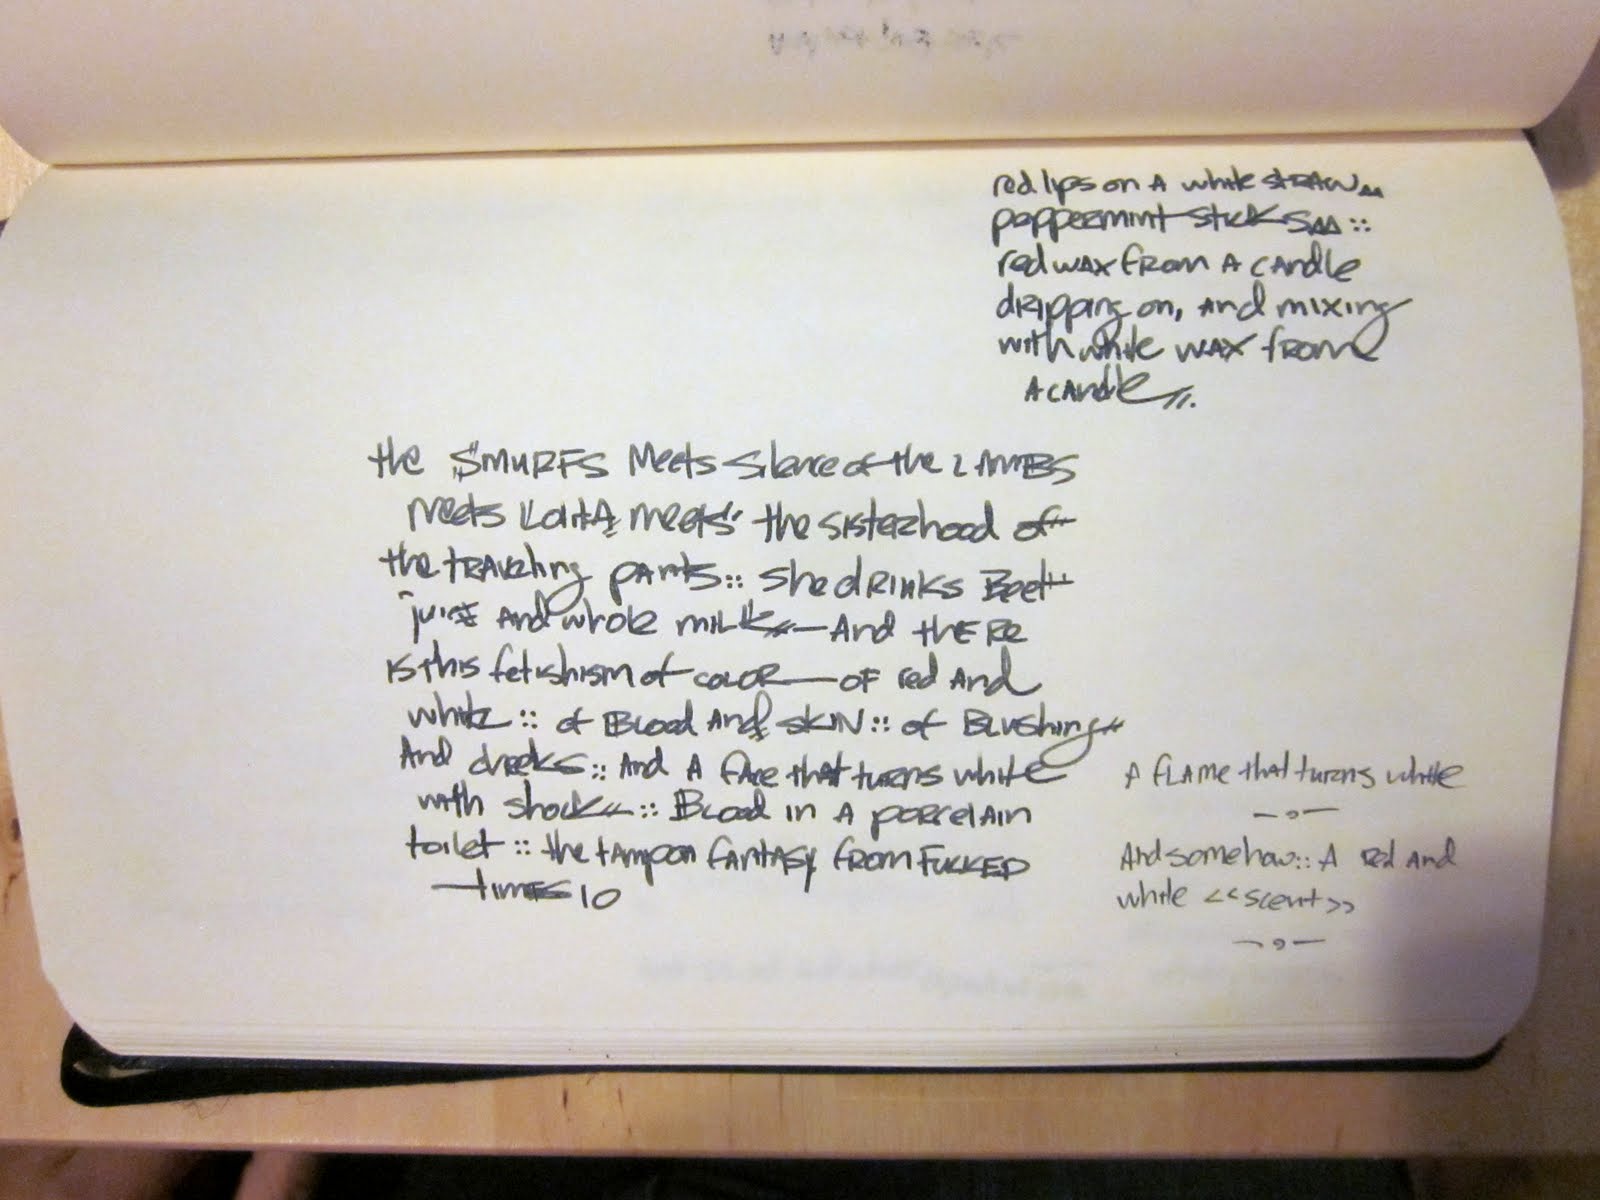 red lips on A white STRAW
peppermint sticks ::
red wax from A candle
dripping on, and mixing
with white wax from
A candle
the SMURFS Meets Silence of the LAMBS
meets LolitA meets the sisterhood of
the traveling pants :: She drinks Beet
juice And whole milk — And there
is this fetishism of color — of red and
white :: of Blood And skin :: of Blushing
And cheeks :: And A face that turns white
with shock :: Blood in A porcelain
toilet :: the tampon fantasy from FUCKED
times 10
A flame that turns white
— , —
And somehow :: A red and
white <<scent>>
— , —